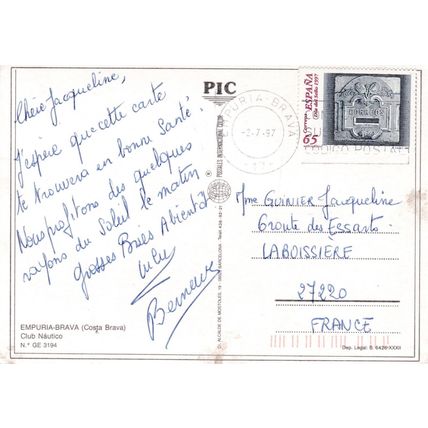 Chère Jacqueline,
J'espère que cette carte
te trouvera en bonne Santé.
Nous profitons des quelques
rayons du Soleil le matin
grosses Bises A bientôt
Lulu
EMPURIA-BRAVA (Costa Brava)
Club Náutico
N.º GE 3194
PIC
EMPURIA-BRAVA
-2.-7.-97
ESPAÑA
Correos
Día del Sello 1997
65
Mme GUINIER Jacqueline
6 route des Essarts
LABOISSIÈRE
27220
FRANCE
Dep. Legal: B. 6426-XXXII